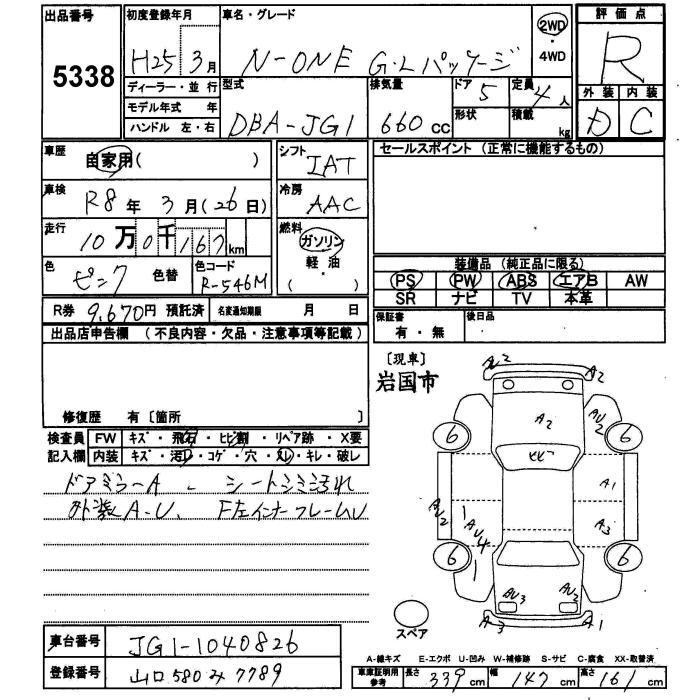 出品番号 初度登録年月 車名・グレード 評価点
5338 H25年3月 N-ONE G・Lパッケージ 2WD・4WD R
ディーラー・並行 型式 排気量 ドア 5 定員 4人 外装 内装
モデル年式 年
ハンドル 左・右 DBA-JG1 660cc 形状 積載 kg D C
車歴 自家用( ) シフト IAT セールスポイント(正常に機能するもの)
車検 R8年3月(26日) 冷房 AAC
走行 10万0千167km 燃料 ガソリン 軽・油 ( )
色 ピンク 色替 色コード R-546M
装備品(純正品に限る)
PS PW ABS エアB AW
SR ナビ TV 本革
R券 9,670円 預託済 名変通知期限 月 日
保証書 有・無 後日品
出品店申告欄(不良内容・欠品・注意事項等記載)
〔現車〕
岩国市
修復歴 有〔箇所 〕
検査員 FW キズ・飛石・ヒビ割・リペア跡・X要
記入欄 内装 キズ・汚レ・コゲ・穴・スレ・キレ・破レ
ドアミラーA シートシミ汚れ
外装A-U、F左インナーフレームU
AU2 A2
A2 AU2
6 6
ヒビ
A1
AU2 1 AU4 1 A3
6 6
AU3 AU2
A3 A1
スペア
車台番号 JG1-1040826
登録番号 山口580み7789
A-線キズ E-エクボ U-凹み W-補修跡 S-サビ C-腐食 XX-取替済
車庫証明用参考 長さ 339cm 幅 147cm 高さ 161cm